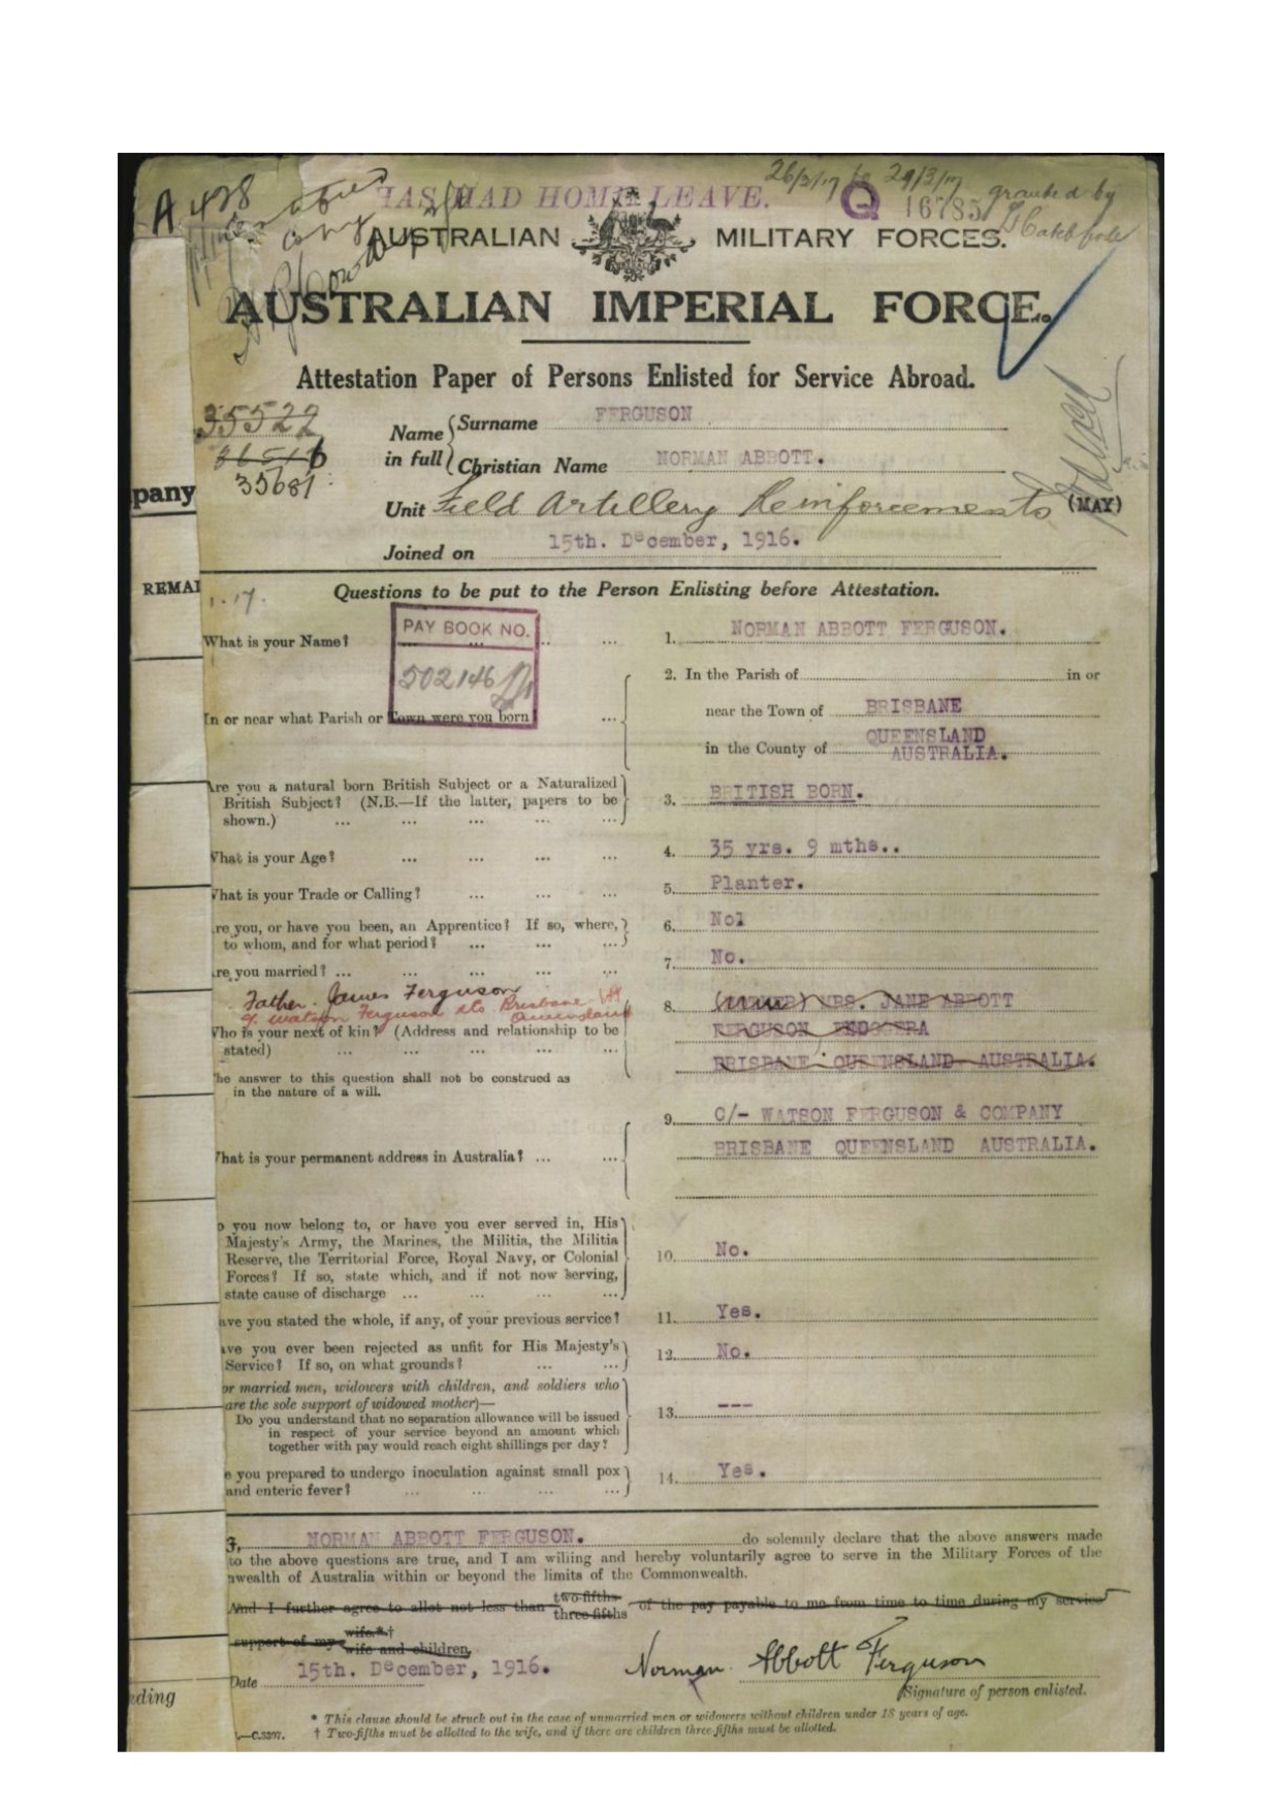 A 428
HAS HAD HOME LEAVE. 26/3/17 to 29/3/17 granted by
Q 16785
AUSTRALIAN MILITARY FORCES.
AUSTRALIAN IMPERIAL FORCE.
Attestation Paper of Persons Enlisted for Service Abroad.
35522
35681
Name in full
Surname FERGUSON
Christian Name NORMAN ABBOTT.
pany
Unit Field Artillery Reinforcements (MAY)
Joined on 15th. December, 1916.
REMAI
1.17.
Questions to be put to the Person Enlisting before Attestation.
PAY BOOK NO.
502146
What is your Name? ... ... 1. NORMAN ABBOTT FERGUSON.
2. In the Parish of in or
In or near what Parish or Town were you born ... near the Town of BRISBANE
in the County of QUEENSLAND
AUSTRALIA.
Are you a natural born British Subject or a Naturalized
British Subject? (N.B.—If the latter, papers to be
shown.) ... ... ... ... ... 3. BRITISH BORN.
What is your Age? ... ... ... ... 4. 35 yrs. 9 mths..
What is your Trade or Calling? ... ... ... 5. Planter.
re you, or have you been, an Apprentice? If so, where,
to whom, and for what period? ... ... ... 6. No1
re you married? ... ... ... ... ... 7. No.
Father. James Ferguson
Watson Ferguson & Co Brisbane
Queensland
Who is your next of kin? (Address and relationship to be
stated) ... ... ... ... ...
8. MRS. JANE ABBOTT
FERGUSON ENOGGERA
BRISBANE QUEENSLAND AUSTRALIA.
he answer to this question shall not be construed as
in the nature of a will.
What is your permanent address in Australia? ... ...
9. C/- WATSON FERGUSON & COMPANY
BRISBANE QUEENSLAND AUSTRALIA.
o you now belong to, or have you ever served in, His
Majesty's Army, the Marines, the Militia, the Militia
Reserve, the Territorial Force, Royal Navy, or Colonial
Forces? If so, state which, and if not now serving,
state cause of discharge ... ... ... ... 10. No.
ave you stated the whole, if any, of your previous service? 11. Yes.
ave you ever been rejected as unfit for His Majesty's
Service? If so, on what grounds? ... ... 12. No.
or married men, widowers with children, and soldiers who
are the sole support of widowed mother)—
Do you understand that no separation allowance will be issued
in respect of your service beyond an amount which
together with pay would reach eight shillings per day? 13. ---
e you prepared to undergo inoculation against small pox
and enteric fever? ... ... ... ... 14. Yes.
I, NORMAN ABBOTT FERGUSON. do solemnly declare that the above answers made
to the above questions are true, and I am willing and hereby voluntarily agree to serve in the Military Forces of the
nwealth of Australia within or beyond the limits of the Commonwealth.
And I further agree to allot not less than two-fifths three-fifths of the pay payable to me from time to time during my service
support of my wife.*† wife and children.
Date 15th. December, 1916. Norman Abbott Ferguson
Signature of person enlisted.
ding
* This clause should be struck out in the case of unmarried men or widowers without children under 18 years of age.
—C.3397. † Two-fifths must be allotted to the wife, and if there are children three-fifths must be allotted.